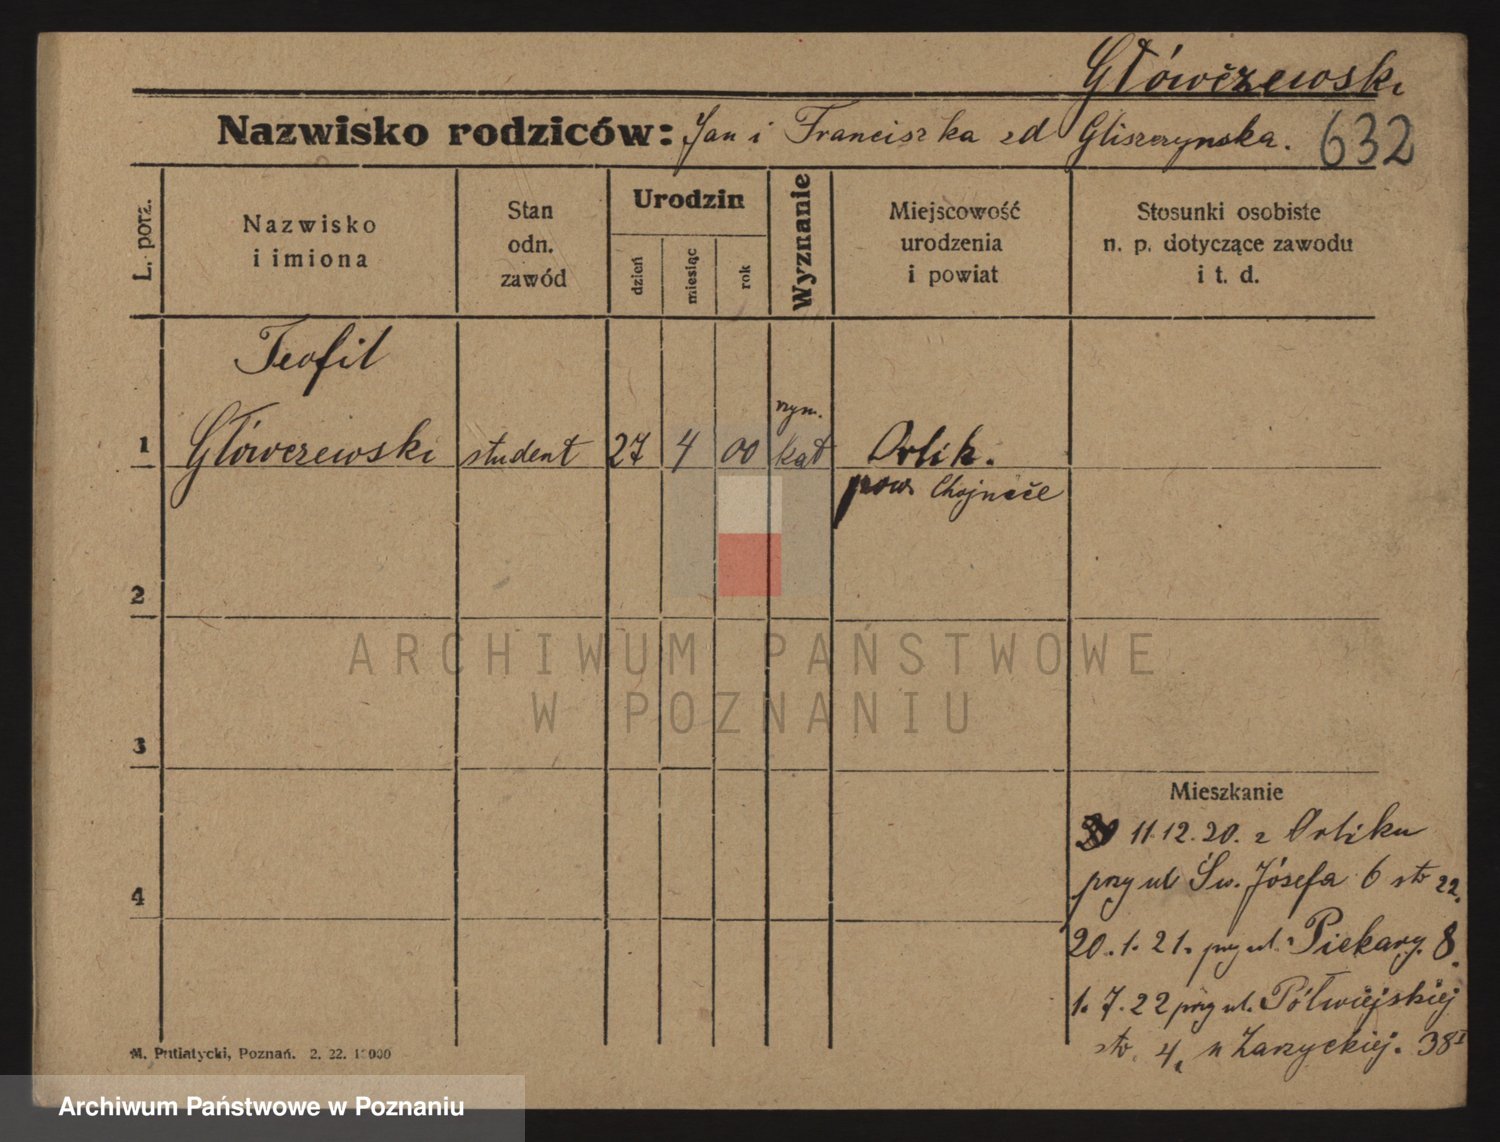 Główczewski
Nazwisko rodziców: Jan i Franciszka zd Gliszczynska. 632
L. porz.
Nazwisko
i imiona
Stan
odn.
zawód
Urodzin
dzień
miesiąc
rok
Wyznanie
Miejscowość
urodzenia
i powiat
Stosunki osobiste
n. p. dotyczące zawodu
i t. d.
Teofil
rzym.
1 Główczewski student 27 4 00 kat Orlik.
pow. Chojnice
2
ARCHIWUM PAŃSTWOWE
W POZNANIU
3
Mieszkanie
11.12.20. z Orliku
przy ul Św. Józefa 6 str 22.
4
20.1.21. przy ul. Piekary. 8.
1.7.22 przy ul. Półwiejskiej
str. 4, u Zarzyckiej. 38 I
M. Putiatycki, Poznań. 2. 22. 10000
Archiwum Państwowe w Poznaniu